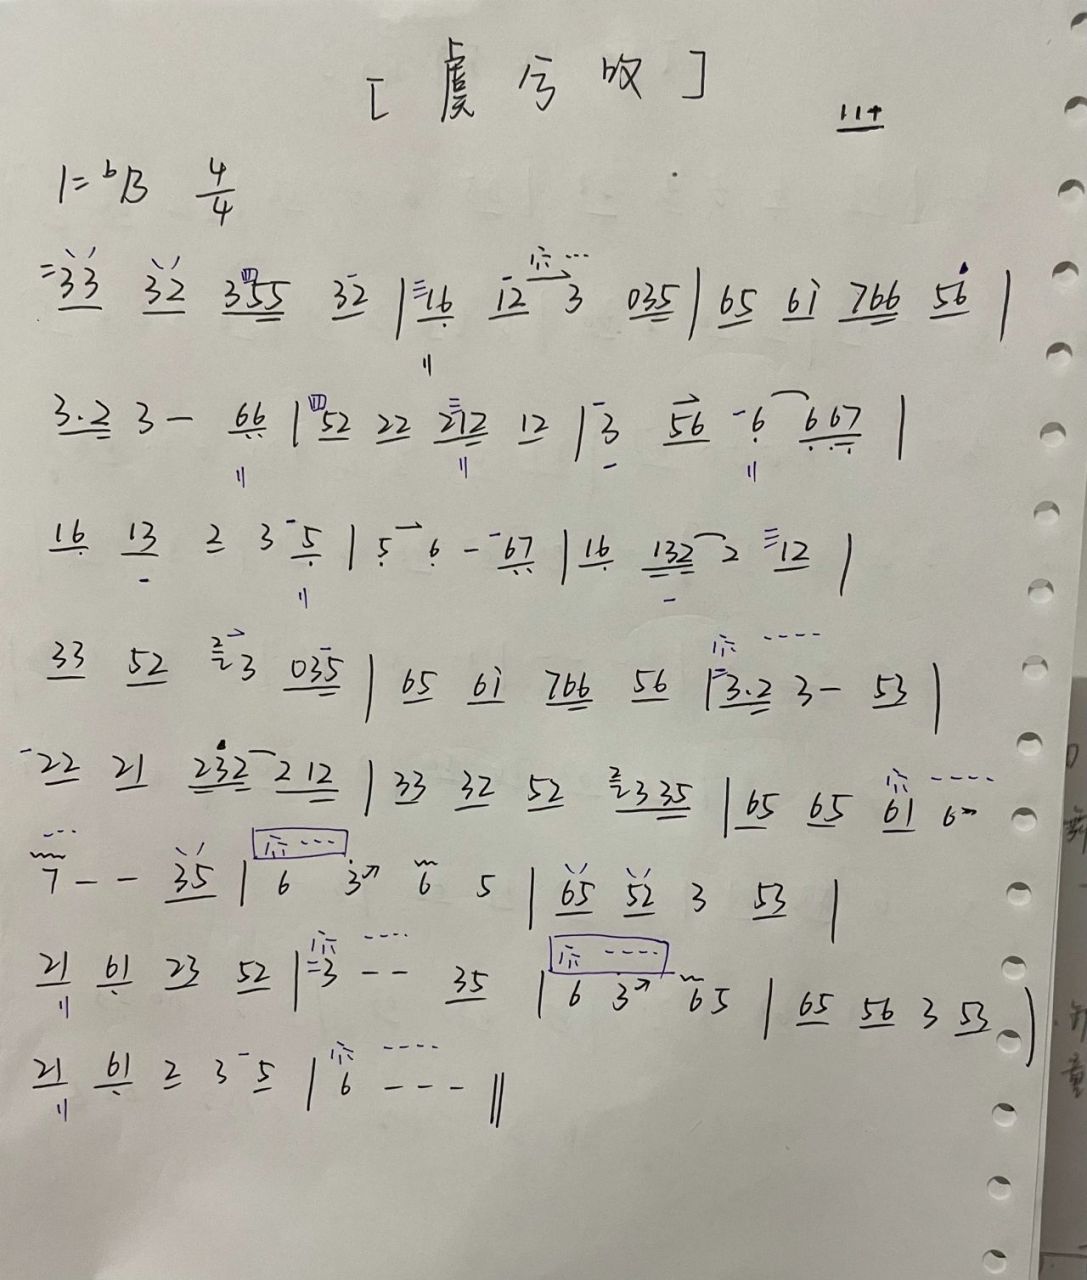 [虞兮叹]
114
1=ᵇB 4/4
33 32 355 32 | 16 12 3 035 | 65 61 766 56 |
3.2 3 - 66 | 52 22 212 12 | 3 56 6 667 |
16 13 2 3 5 | 5 6 - 67 | 16 132 2 12 |
33 52 2 3 035 | 65 61 766 56 | 3.2 3 - 53 |
22 21 232 2 12 | 33 32 52 2 3 35 | 65 65 61 6
7 - - 35 | 6 3 6 5 | 65 52 3 53 |
21 61 23 52 | 3 - - 35 | 6 3 6 5 | 65 56 3 53 |
21 61 2 3 5 | 6 - - - ‖